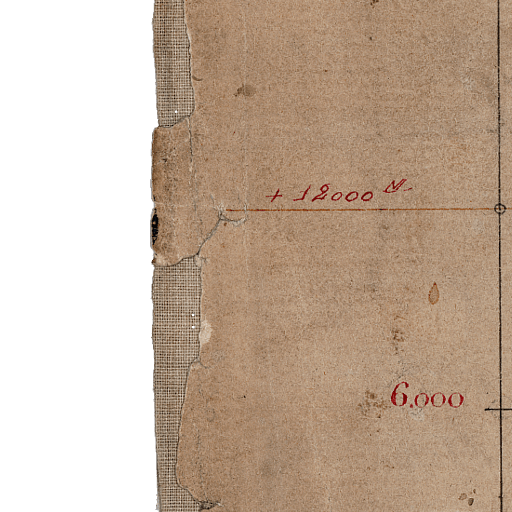 + 12000 M.
6.000